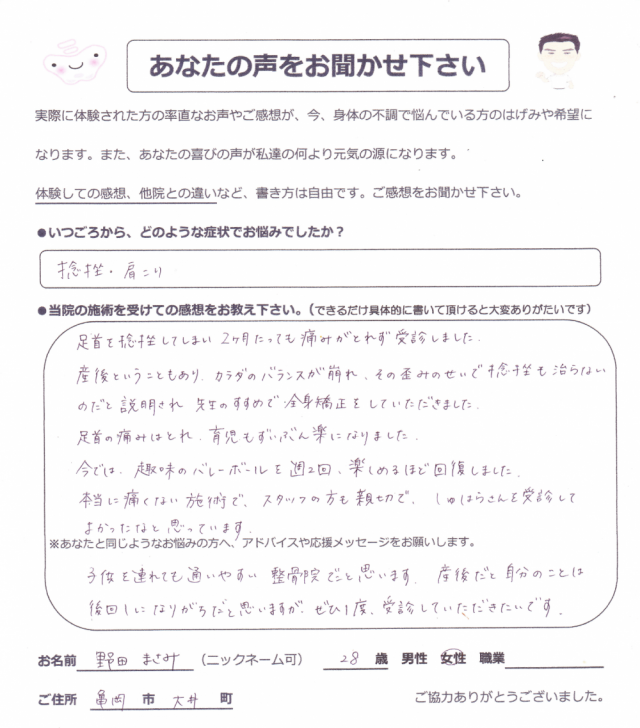 あなたの声をお聞かせ下さい
実際に体験された方の率直なお声やご感想が、今、身体の不調で悩んでいる方のはげみや希望に
なります。また、あなたの喜びの声が私達の何より元気の源になります。
体験しての感想、他院との違いなど、書き方は自由です。ご感想をお聞かせ下さい。
●いつごろから、どのような症状でお悩みでしたか？
捻挫・肩こり
●当院の施術を受けての感想をお教え下さい。（できるだけ具体的に書いて頂けると大変ありがたいです）
足首を捻挫してしまい 2ヶ月たっても痛みがとれず受診しました.
産後ということもあり、カラダのバランスが崩れ、その歪みのせいで捻挫も治らない
のだと説明され 先生のすすめで全身矯正をしていただきました.
足首の痛みはとれ、育児もずいぶん楽になりました.
今では、趣味のバレーボールを週2回、楽しめるほど回復しました.
本当に痛くない施術で、スタッフの方も親切で、しゅはらさんを受診して
よかったなと思っています.
※あなたと同じようなお悩みの方へ、アドバイスや応援メッセージをお願いします。
子供を連れても通いやすい 整骨院でと思います. 産後だと自分のことは
後回しになりがちだと思いますが、ぜひ1度、受診していただきたいです.
お名前 野田 まさみ （ニックネーム可） 28 歳 男性 女性 職業
ご住所 亀岡 市 大井 町 ご協力ありがとうございました。